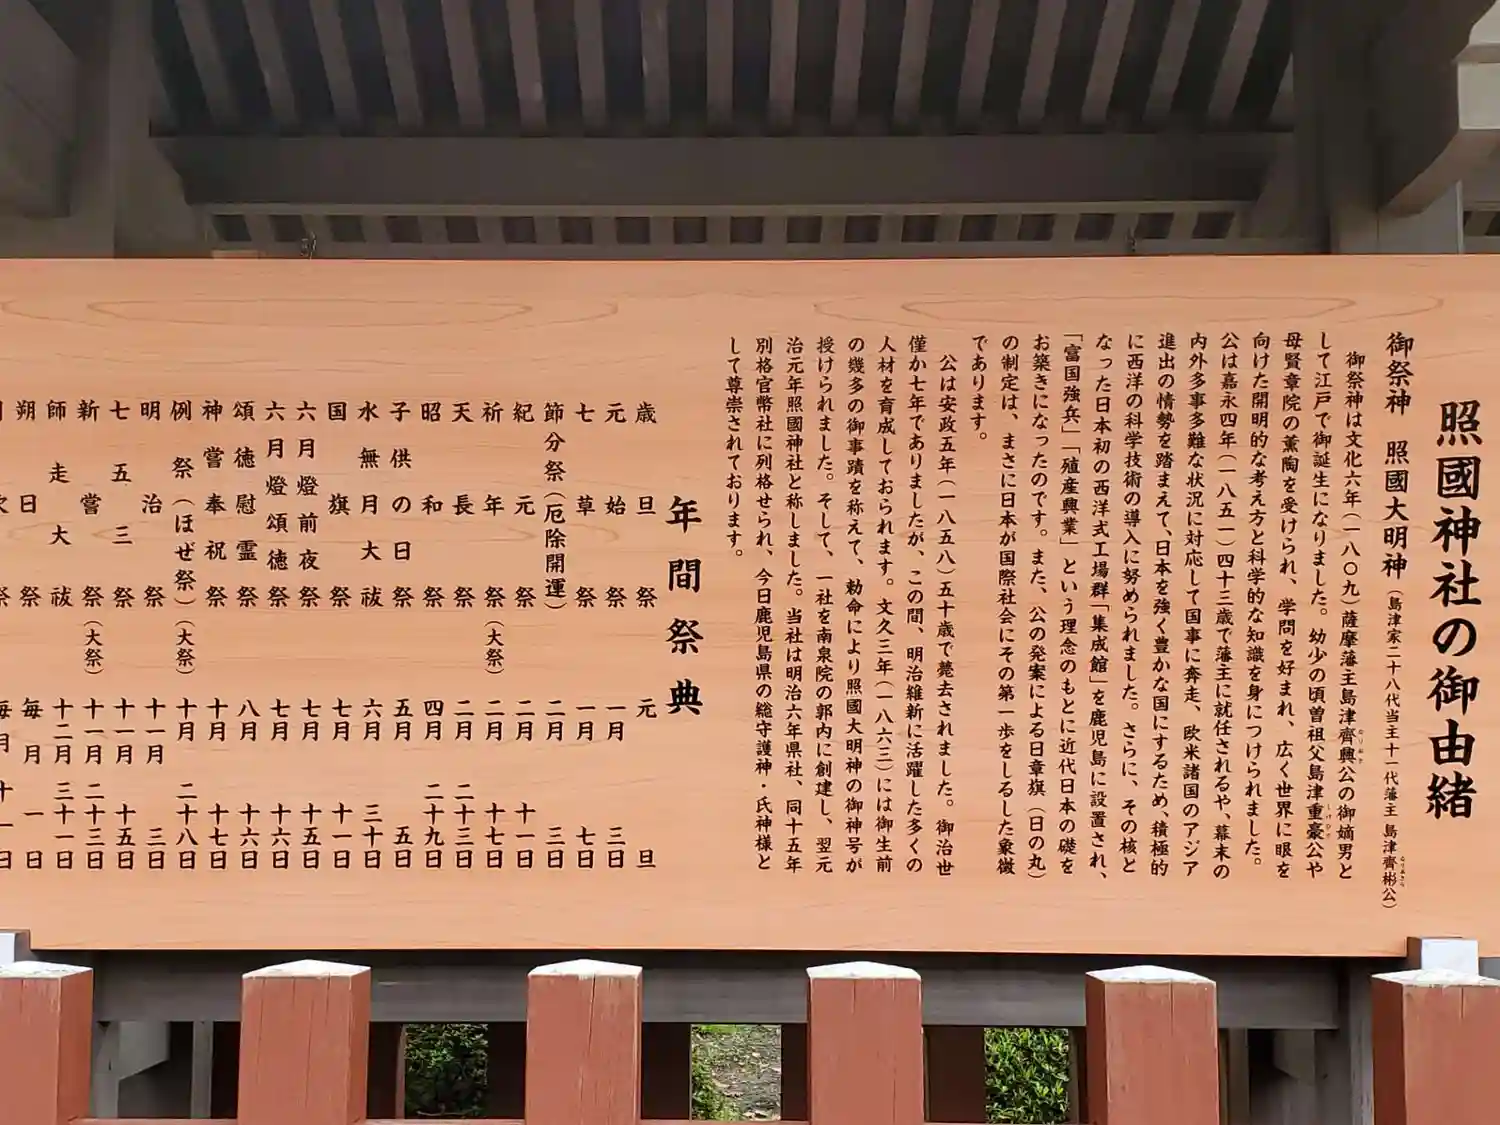 照國神社の御由緒
御祭神 照國大明神（島津家二十八代当主十一代藩主 島津齊彬公）
なりあきら
御祭神は文化六年（一八〇九）薩摩藩主島津齊興公の御嫡男と
なりおき
して江戸で御誕生になりました。幼少の頃曽祖父島津重豪公や
しげひで
母賢章院の薫陶を受けられ、学問を好まれ、広く世界に眼を
向けた開明的な考え方と科学的な知識を身につけられました。
公は嘉永四年（一八五一）四十三歳で藩主に就任されるや、幕末の
内外多事多難な状況に対応して国事に奔走、欧米諸国のアジア
進出の情勢を踏まえて、日本を強く豊かな国にするため、積極的
に西洋の科学技術の導入に努められました。さらに、その核と
なった日本初の西洋式工場群「集成館」を鹿児島に設置され、
「富国強兵」「殖産興業」という理念のもとに近代日本の礎を
お築きになったのです。また、公の発案による日章旗（日の丸）
の制定は、まさに日本が国際社会にその第一歩をしるした象徴
であります。
公は安政五年（一八五八）五十歳で薨去されました。御治世
僅か七年でありましたが、この間、明治維新に活躍した多くの
人材を育成しておられます。文久三年（一八六三）には御生前
の幾多の御事蹟を称えて、勅命により照國大明神の御神号が
授けられました。そして、一社を南泉院の郭内に創建し、翌元
治元年照國神社と称しました。当社は明治六年県社、同十五年
別格官幣社に列格せられ、今日鹿児島県の総守護神・氏神様と
して尊崇されております。
年間祭典
歳旦祭 元旦
元始祭 一月三日
七草祭 一月七日
節分祭（厄除開運） 二月三日
紀元祭 二月十一日
祈年祭（大祭） 二月十七日
天長祭 二月二十三日
昭和祭 四月二十九日
子供の日祭 五月五日
水無月大祓 六月三十日
国旗祭 七月十一日
六月燈前夜祭 七月十五日
六月燈頌徳祭 七月十六日
頌徳慰霊祭 八月十六日
神嘗奉祝祭 十月十七日
例祭（ほぜ祭）（大祭） 十月二十八日
明治祭 十一月三日
七五三祭 十一月十五日
新嘗祭（大祭） 十一月二十三日
師走大祓 十二月三十一日
朔日祭 毎月一日
月次祭 毎月十一日